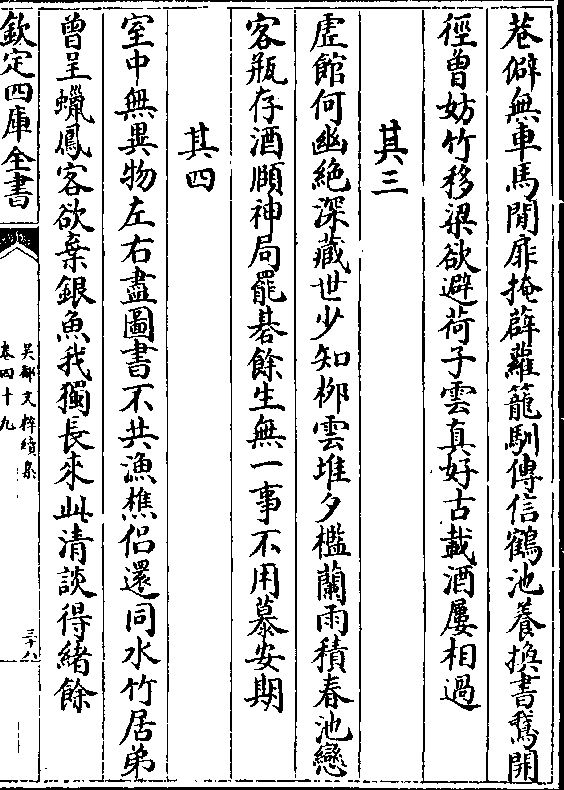 巷僻無車馬閒扉掩薜蘿籠馴傳信鶴池養換書鵞開
徑曾妨竹移梁欲避荷子雲真好古載酒屢相過
其三
虛館何幽絶深藏世少知栁雲堆夕檻蘭雨積春池戀
客瓶存酒頥神局罷棊餘生無一事不用慕安期
其四
室中無異物左右盡圖書不共漁樵侣還同水竹居弟
曾呈蠟鳳客欲棄銀魚我獨長來此清談得緒餘
欽定四庫全書
吴都文粹續集
卷四十九
三十八